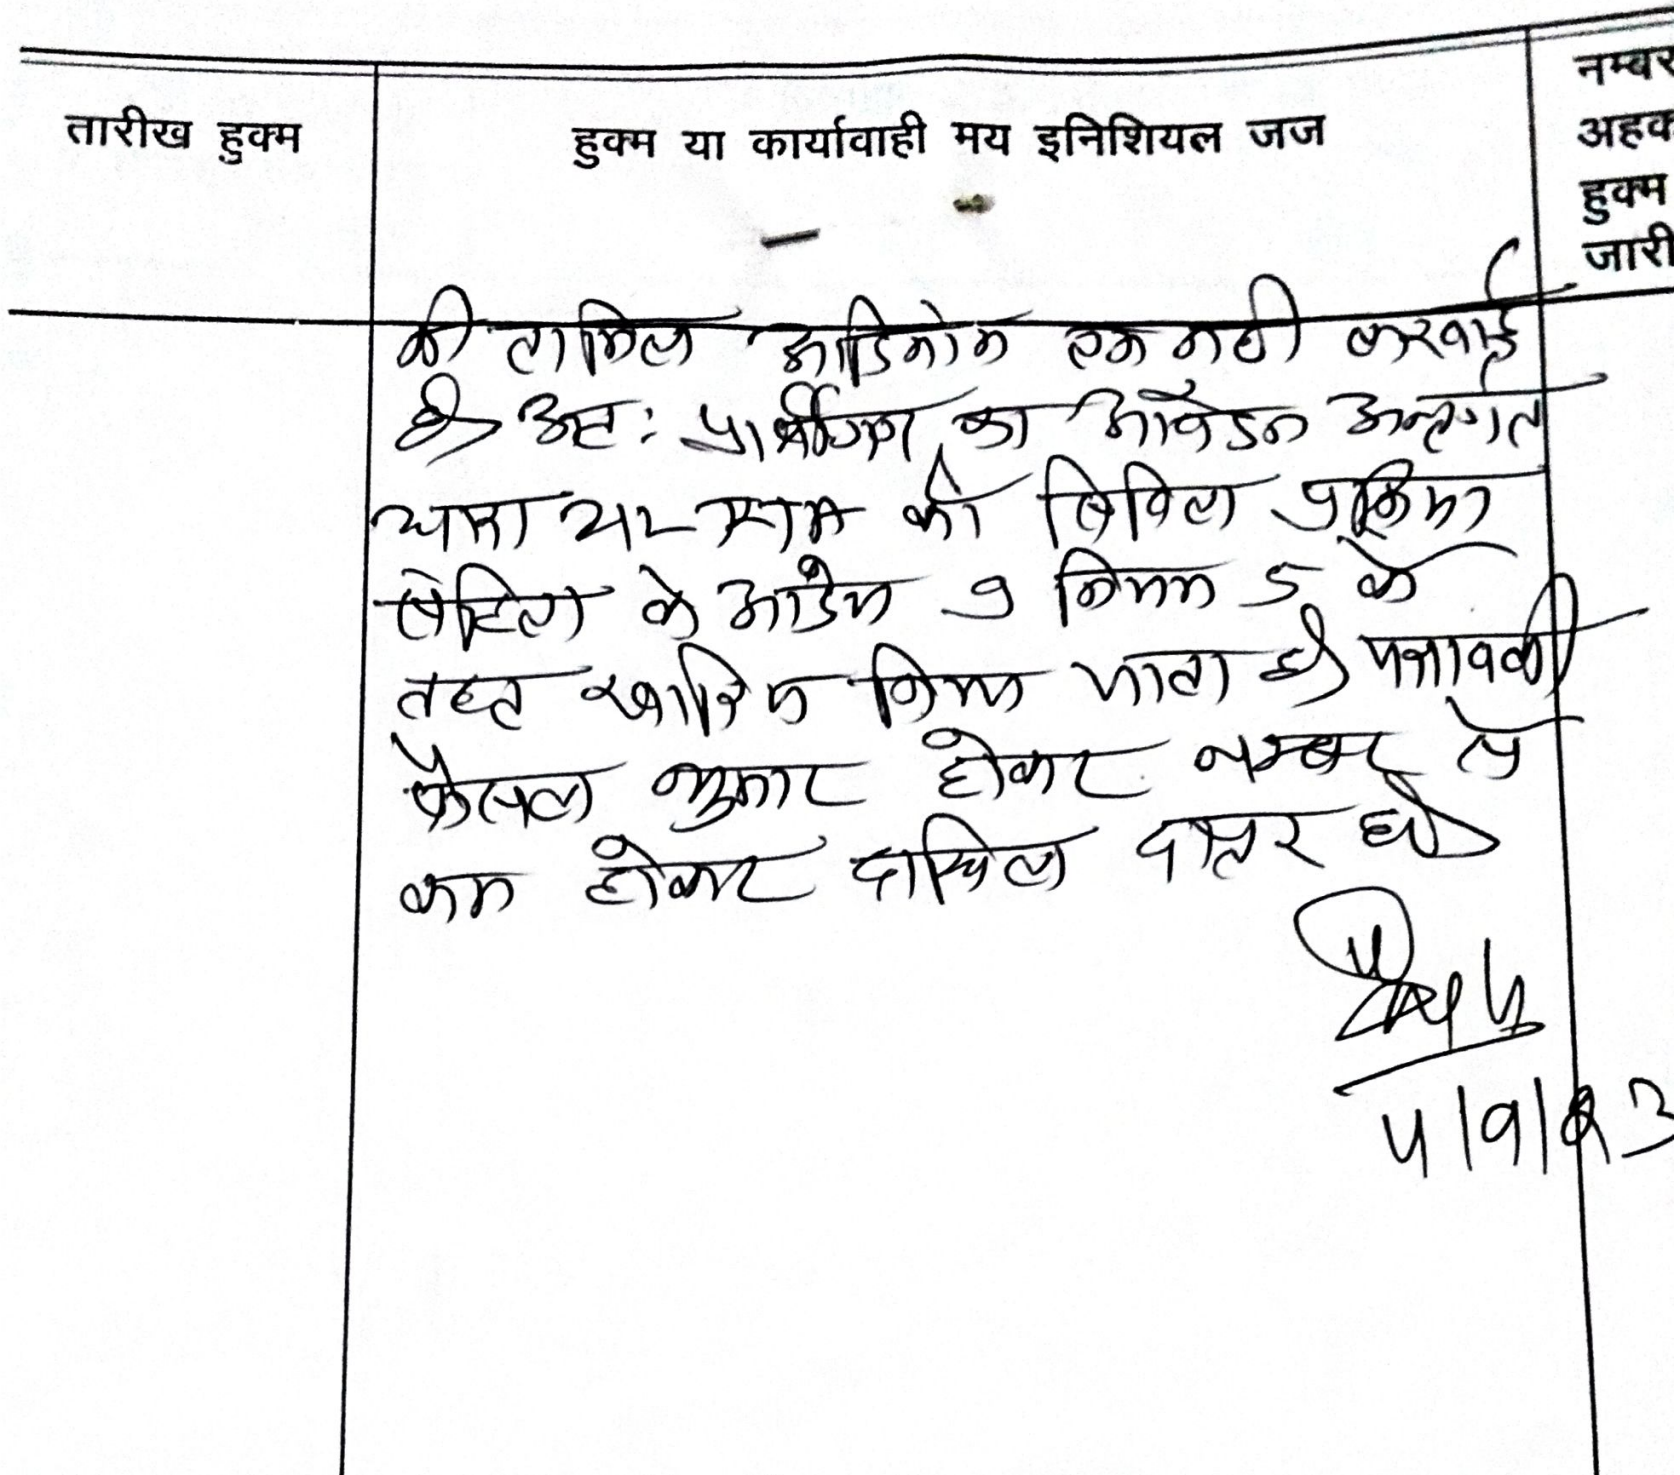 तारीख हुक्म
हुक्म या कार्यावाही मय इनिशियल जज
नम्बर
अहक
हुक्म
जारी
की तामिल आदिनांक तक नही करवाई
है अतः प्रार्थीगण का आवेदन अन्तर्गत
धारा की सिविल प्रक्रिया
संहिता के आदेश 9 नियम 5 के
तहत खारिज किया जाता है पत्रावली
फैसल शुमार होकर नम्बर से
कम होकर दाखिल दफ्तर हो
4/9/23